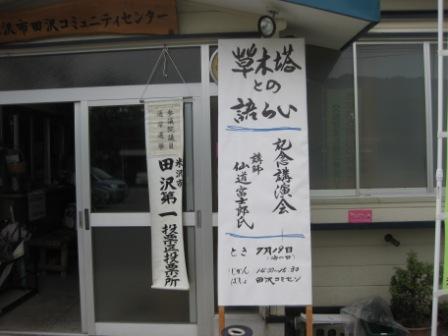 沢市田沢コミュニティセンター
参議院議員
通常選挙
米沢市
田沢第一投票区投票所
草木塔
との
語らい
記念講演会
講師
仙道富士郎氏
とき 7月19日
じかん
ばしょ 田沢コミセン